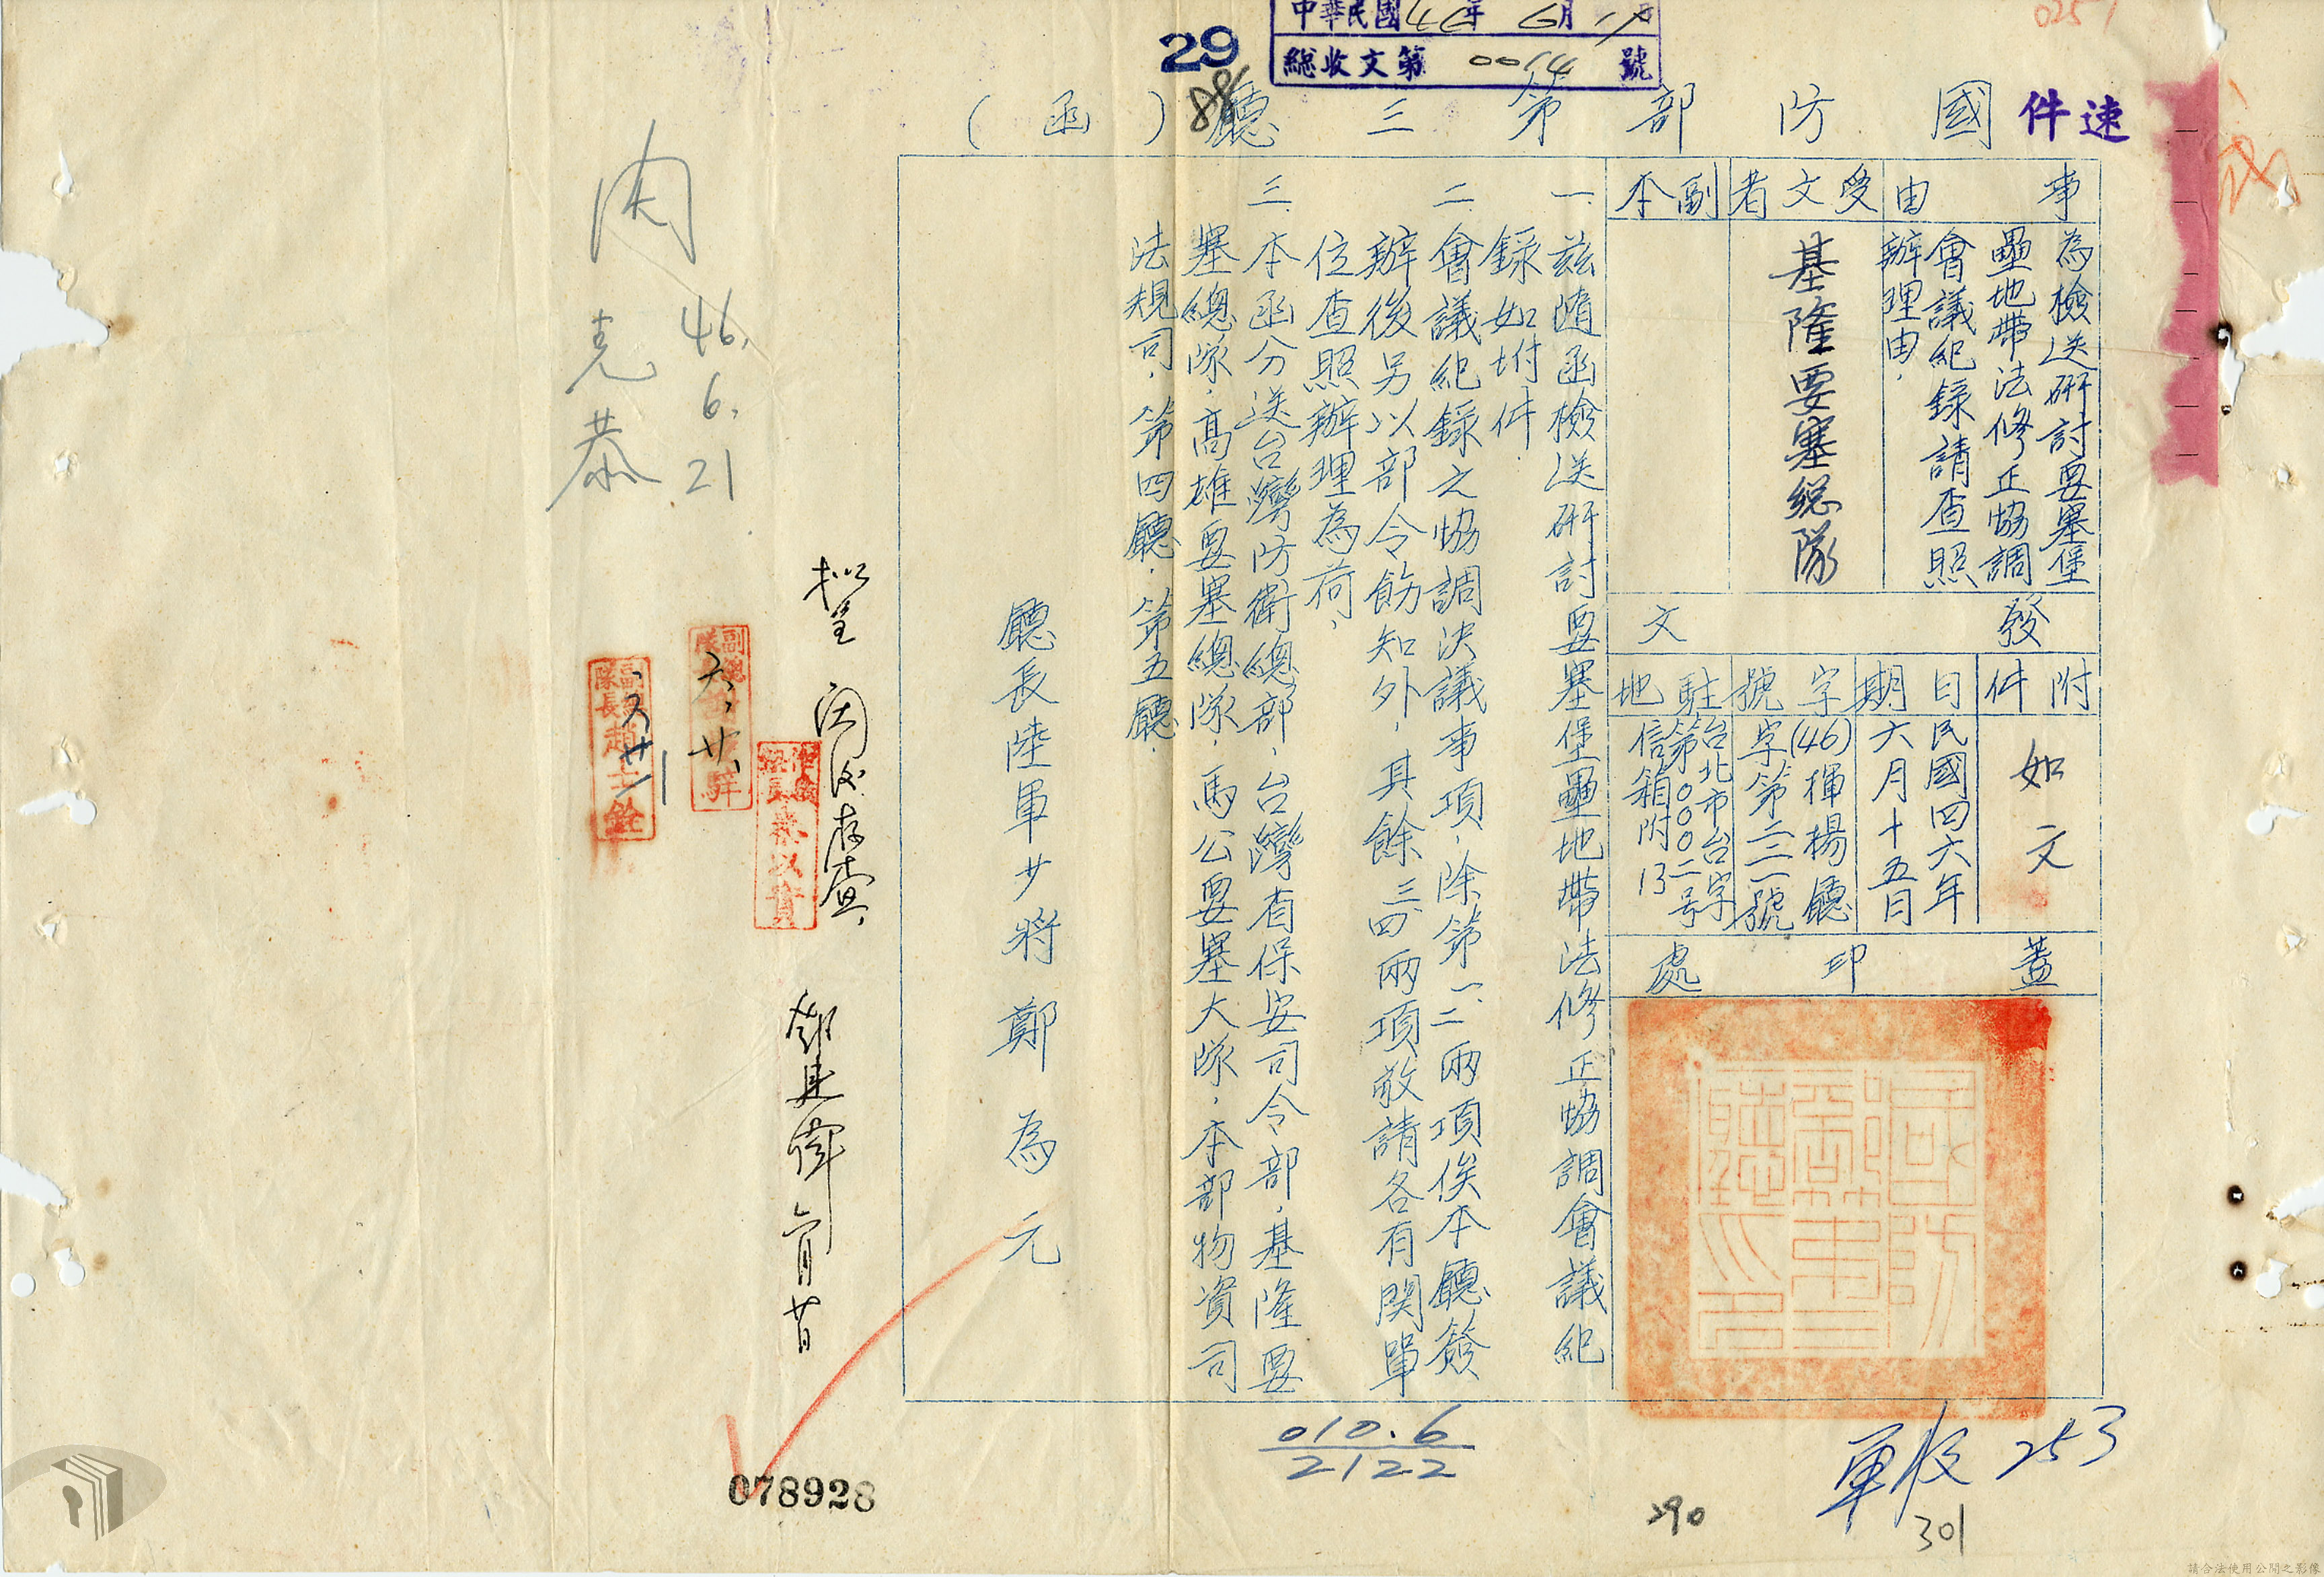 0251
中華民國46年6月1 日
總收文第0014號
29
速件
國防部第三廳(函)
事由
為檢送研討要塞堡
壘地帶法修正協調
會議紀錄請查照
辦理由.
受文者
基隆要塞總隊
副本
發文
附件
如文
日期
民國四六年
六月十五日
字號
(46)揮揚廳
字第三三一號
駐地
台北市台字
第〇〇〇二号
信箱附13
蓋印處
一.茲隨函檢送研討要塞堡壘地帶法修正協調會議紀
錄如附件.
二.會議紀錄之協調決議事項.除第一.二兩項俟本廳簽
辦後另以部令飭知外.其餘三.四兩項敬請各有関單
位查照辦理為荷.
三.本函分送台灣防衛總部.台灣省保安司令部.基隆要
塞總隊.高雄要塞總隊.馬公要塞大隊.本部物資司
法規司.第四廳.第五廳.
廳長陸軍少將鄭為元
擬呈 閱後存查.
副總隊長趙士銓
六.廿.
46.6.21
克恭
078928
010.6
2122
軍役253
290
301
請合法使用公開之影像